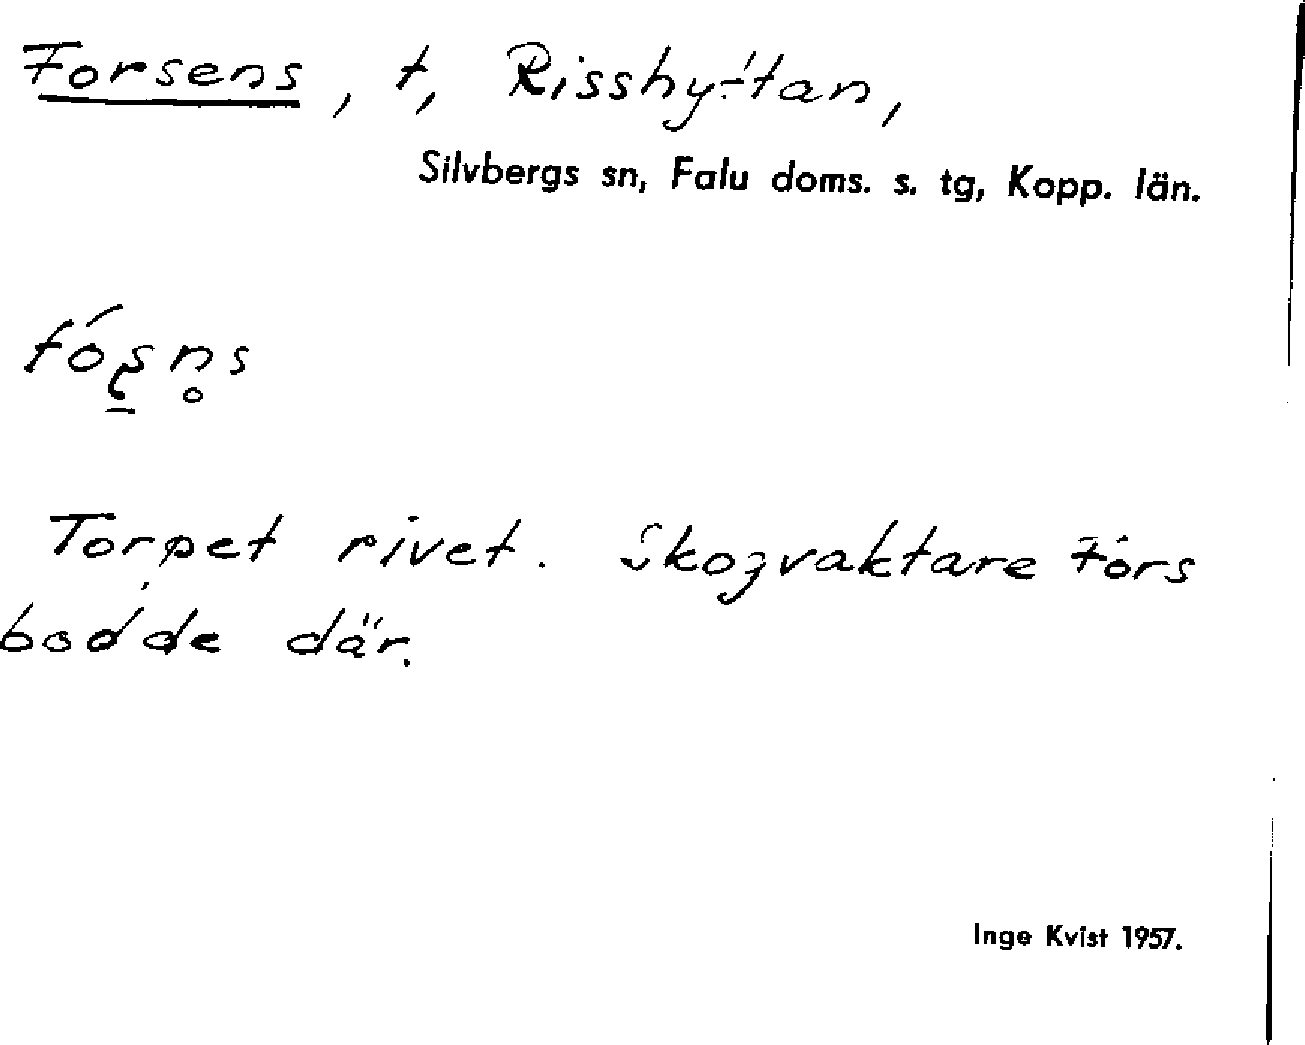 Forsens, t, Risshyttan,
Silvbergs sn, Falu doms. s. tg, Kopp. län.
Torpet rivet. Skogvaktare Fors
bodde där.
Inge Kvist 1957.